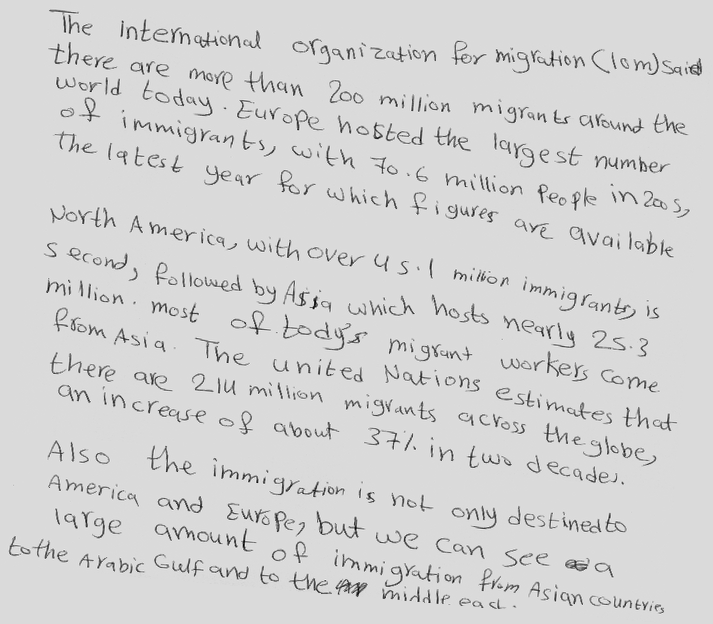 The international organization for migration (Iom) said
there are more than 200 million migrants around the
world today. Europe hosted the largest number
of immigrants, with 70.6 million People in 2005,
the latest year for which figures are available
North America, with over 45.1 million immigrants, is
second, followed by Asia which hosts nearly 25.3
million. most of tody's migrant workers come
from Asia. The united Nations estimates that
there are 214 million migrants across the globe,
an increase of about 37% in two decades.
Also the immigration is not only destined to
America and Europe, but we can see a
large amount of immigration from Asian countries
to the Arabic Gulf and to the middle east.